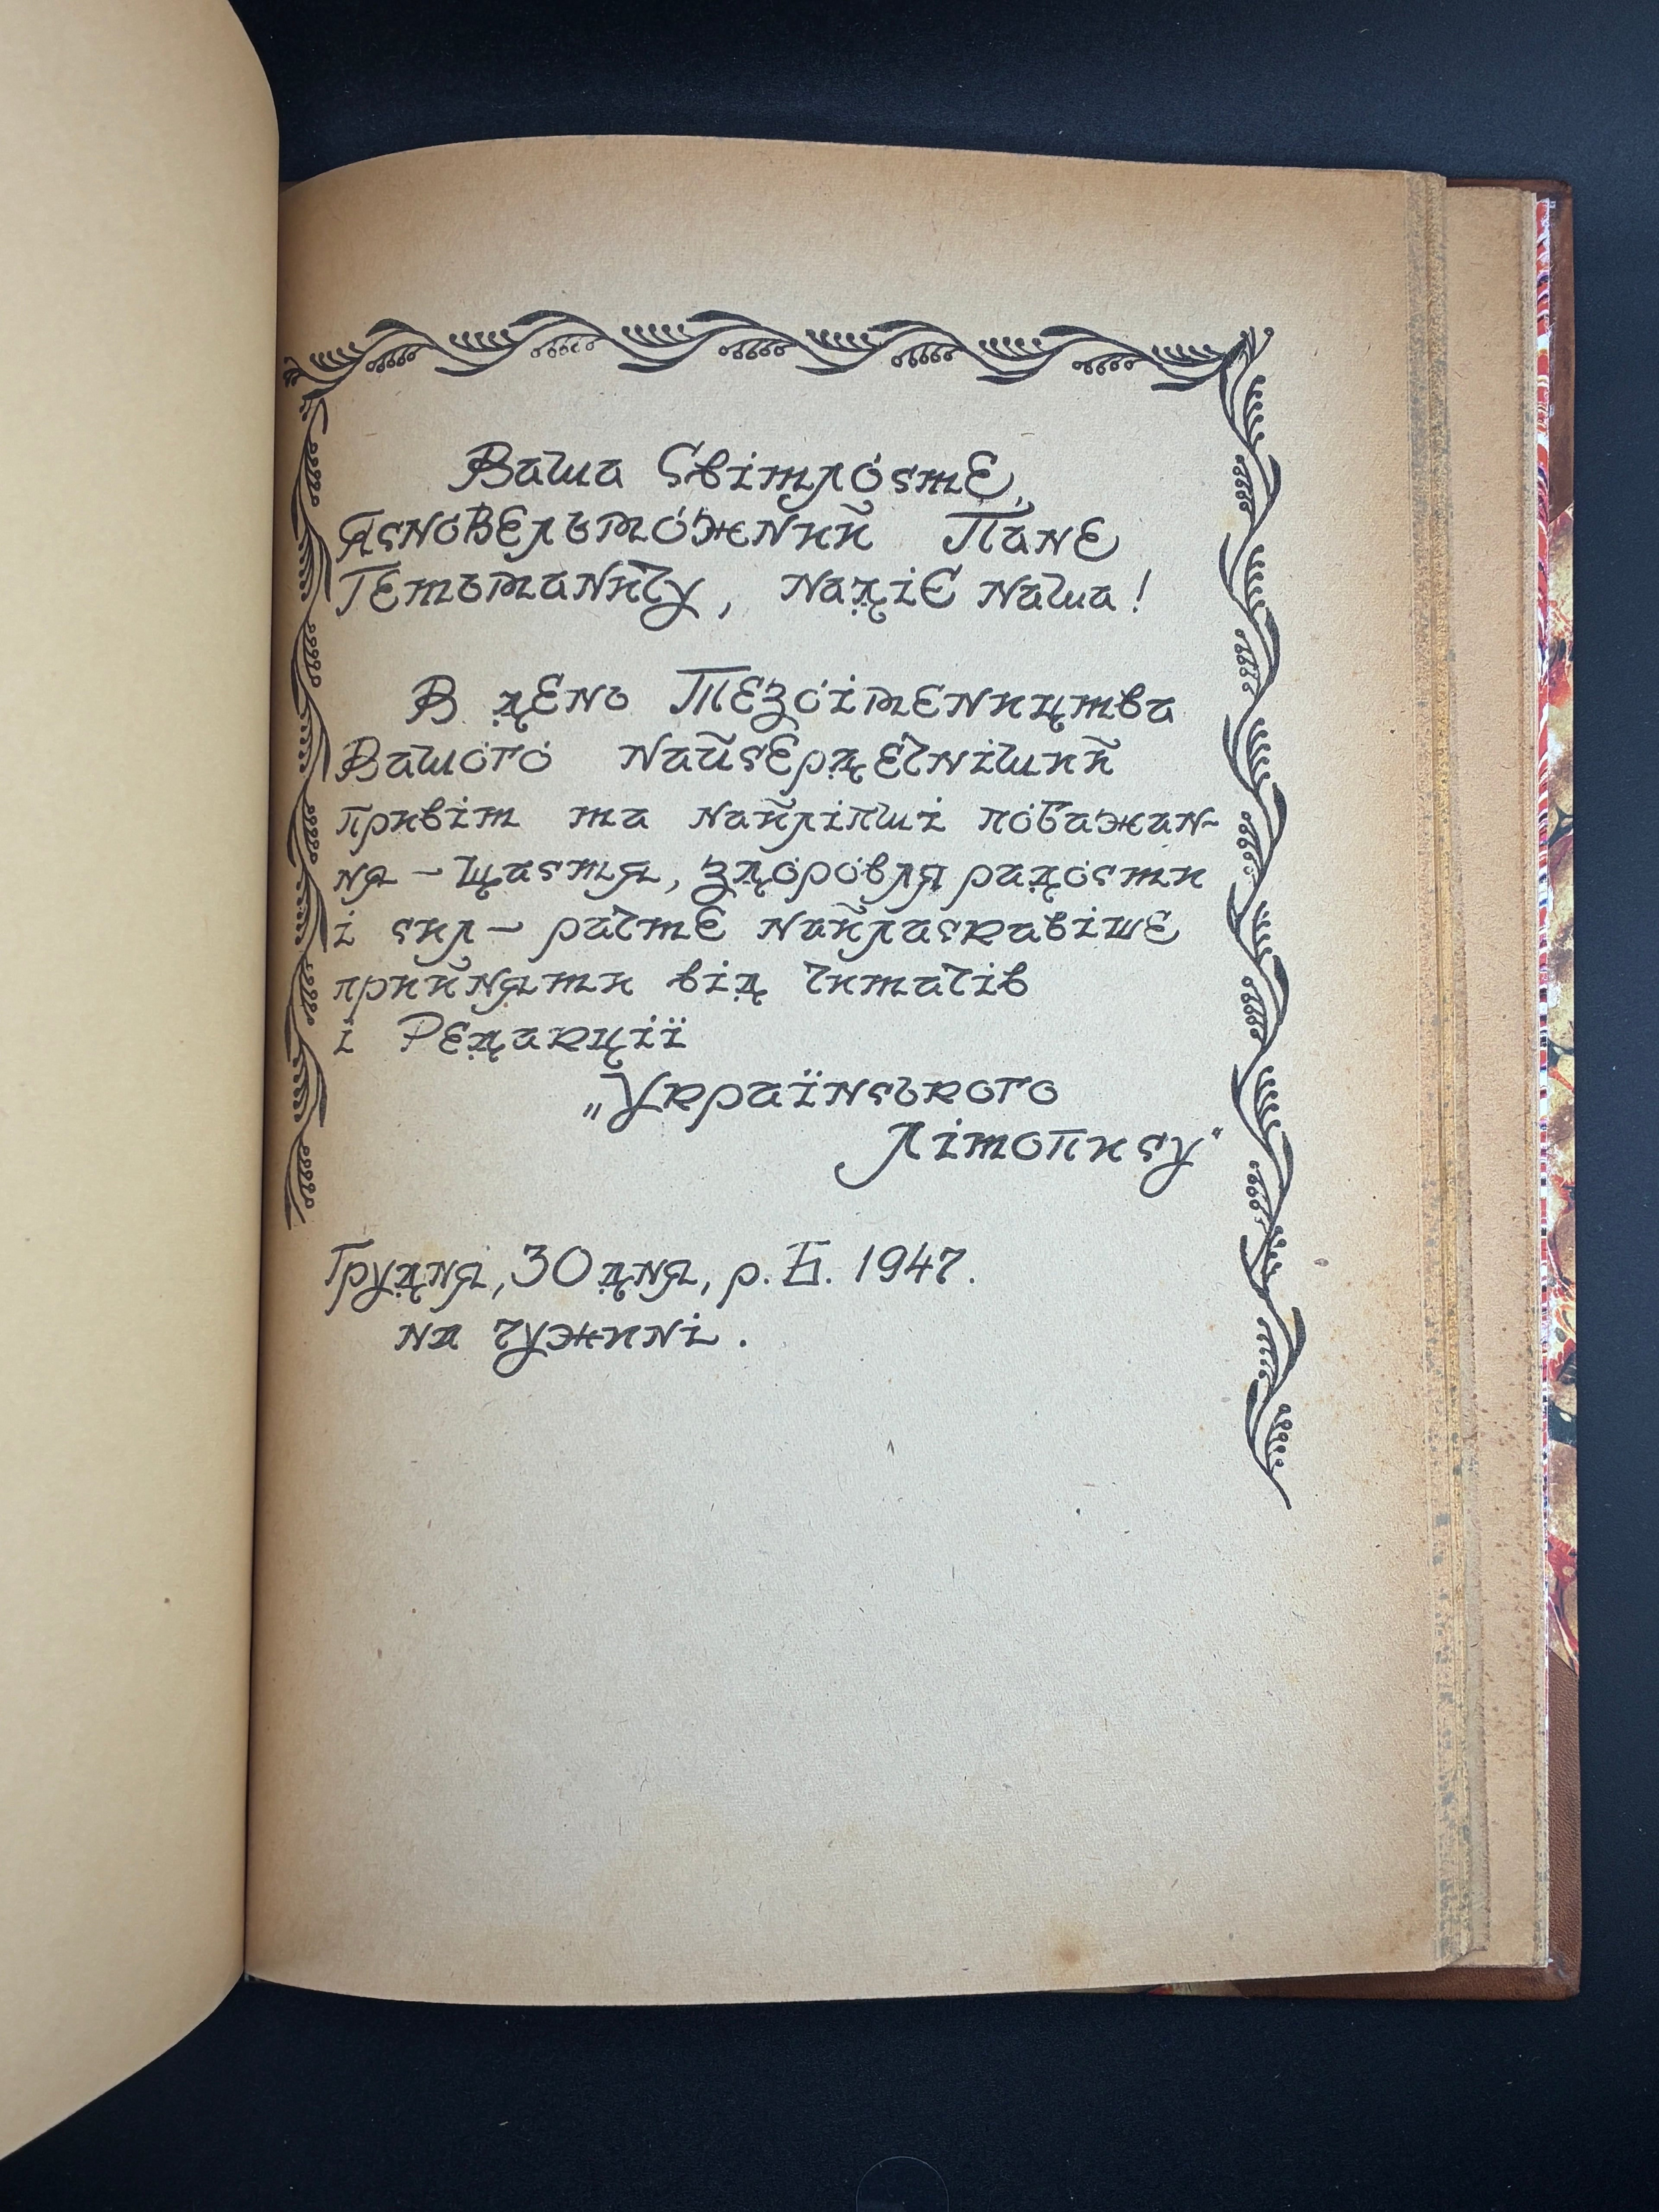 Ваша Світлосте,
Ясновельможний Пане
Гетьманичу, надіє наша!
В день Тезоімеництва
Вашого найсердечніший
привіт та найліпші побажан-
ня – щастя, здоровля радости
і сил – рачте найласкавіше
прийняти від читачів
і Редакції
„Українського
Літопису"
Грудня, 30 дня, р. Б. 1947.
на чужині.